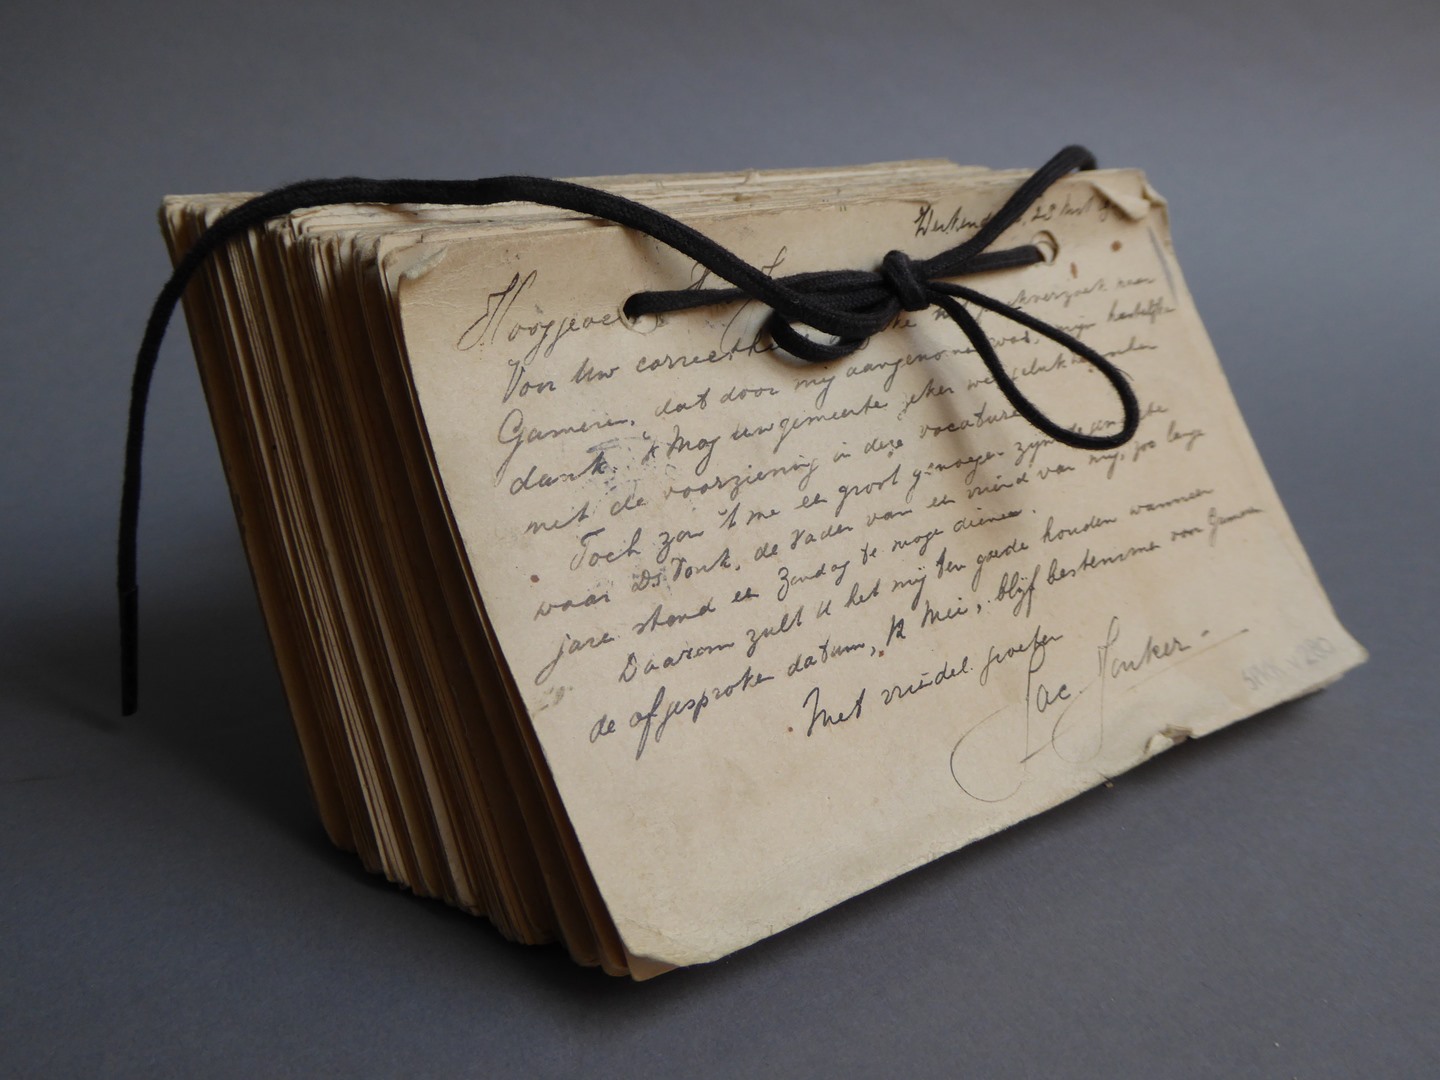 Hooggeac
Voor Uw correcthe
Gameren, dat door mij aangenomen was, mijn hartelijke
dank. 'k Mag uw gemeente zeker wel geluk
met de voorziening in deze vacature
Toch zou 't me een groot genoegen zijn de
waar Ds Vonk, de vader van een vriend van mij, zoo lange
jare stond een Zondag te moge dienen.
Daarom zult U het mij ten goede houden wanneer
de afgesproken datum, 12 Mei, blijf bestemme van Gameren
Met vriendel. groeten
Jac. Jonker-